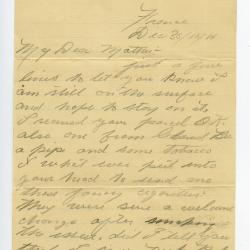 France
Dec 30/1918
My Dear Mother:-
Just a few
lines to let you know I
am still on the
and hope to stay on it.
I received your parcel O.K.
also one from
a pipe and some tobacco
what ever put into
your head to send me
those fancy cigarettes
They were sure a welcome
change after smoking
the issue, did I tell you